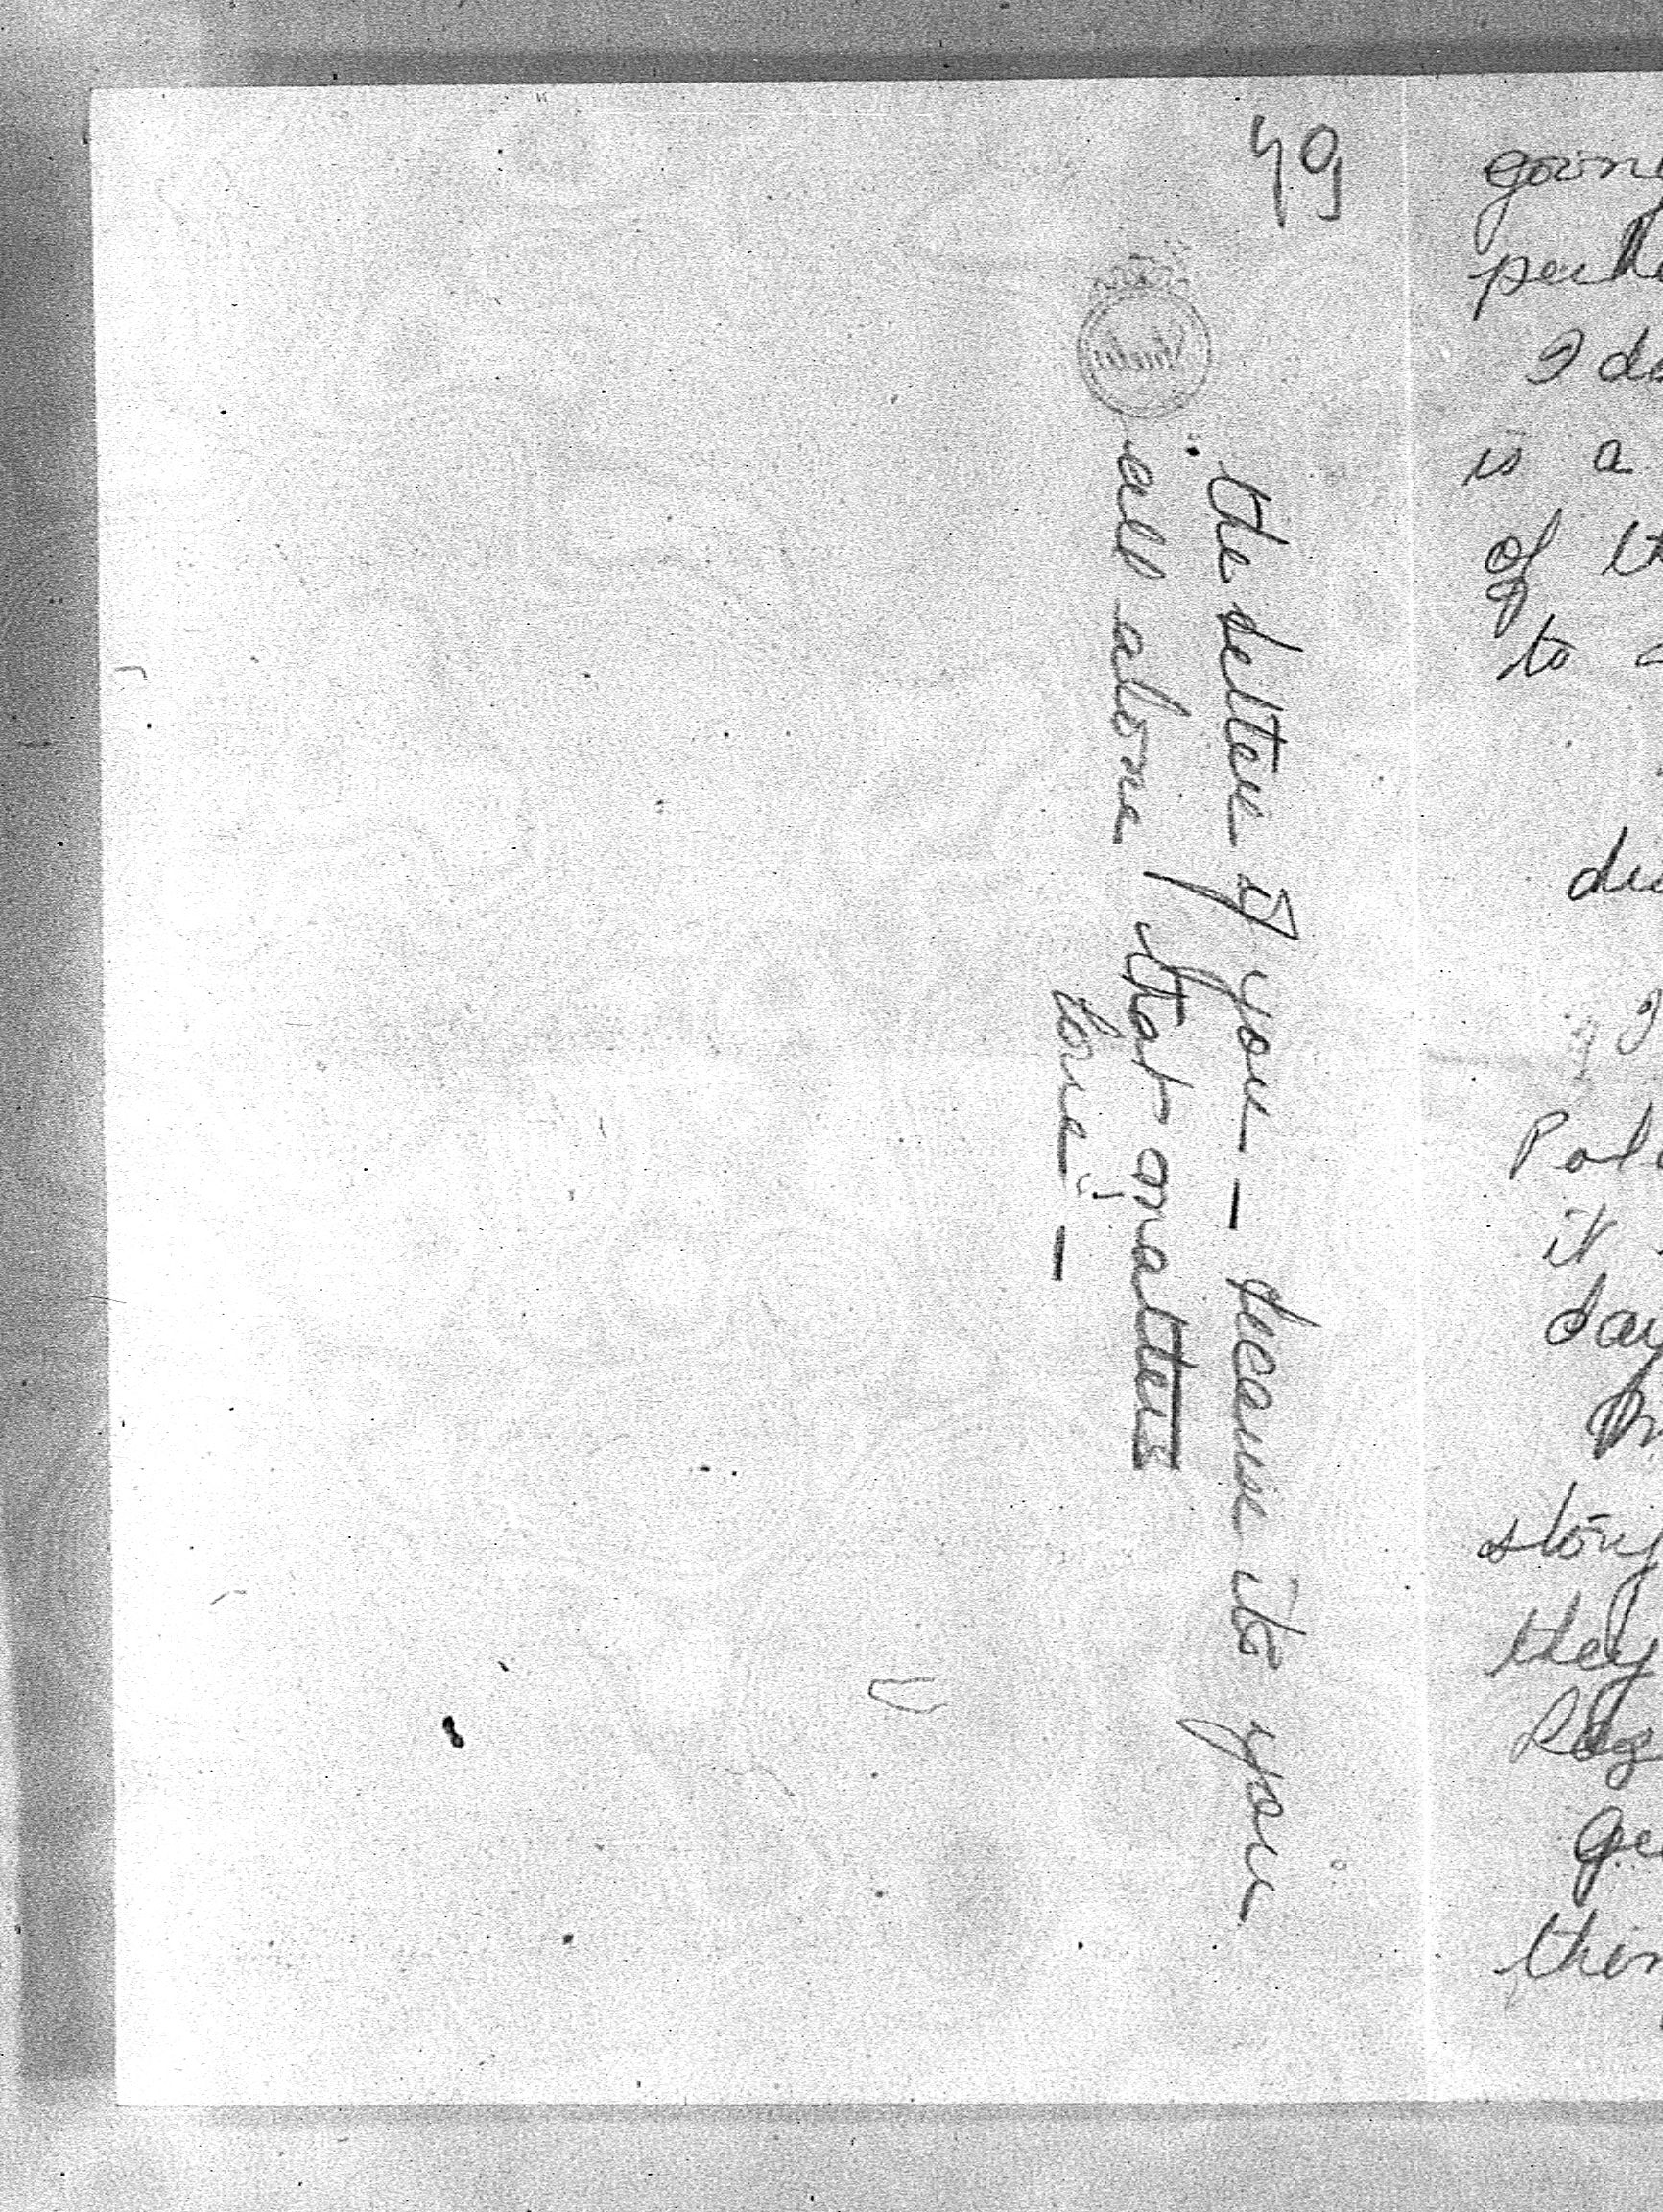 49
the better if you — because its you
all alone that matters
love" —
going
I do
is a
of th
to a
die
I
Pol
it
day
story
they
Ge
thin